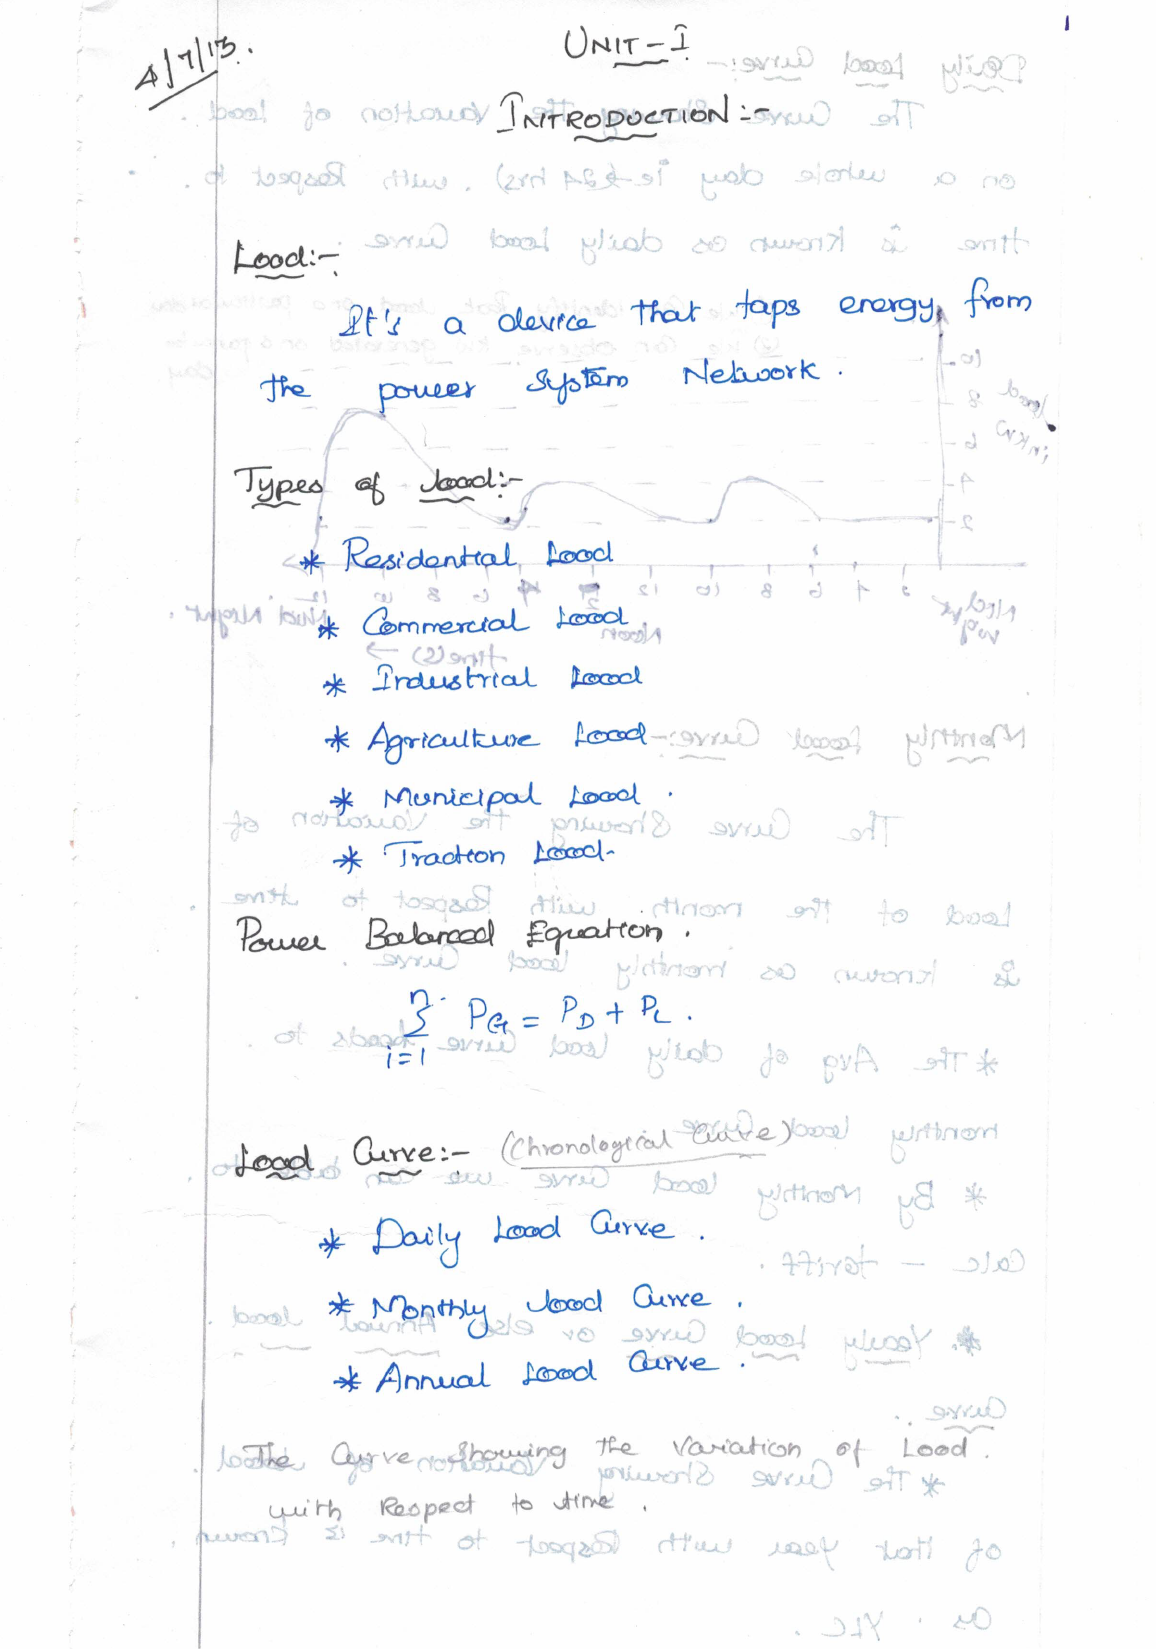 1
4/7/13.
UNIT-I
INTRODUCTION:-
Load:-
It's a device that taps energy from
the power System Network.
Types of load:-
* Residential Load
* Commercial Load
* Industrial Load
* Agriculture Load
* Municipal Load.
* Traction Load.
Power Balanced Equation.
n
Σ P_G = P_D + P_L.
i=1
Load Curve:- (Chronological Curve)
* Daily Load Curve.
* Monthly load Curve.
* Annual Load Curve.
The Curve Showing the Variation of Load.
with Respect to time.